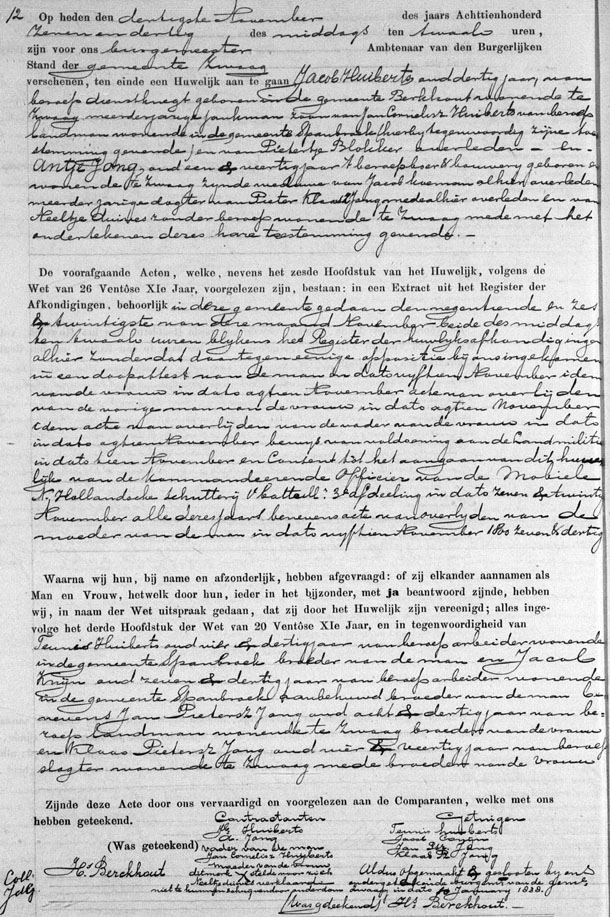 12 Op heden den dertigste November des jaars Achttienhonderd
Zeven en dertig des middags ten twaalf uren,
zijn voor ons burgemeester Ambtenaar van den Burgerlijken
Stand der gemeente Zwaag
verschenen, ten einde een Huwelijk aan te gaan Jacob Huiberts oud dertig jaar, van
beroep dienstknegt geboren in de gemeente Berkhout wonende te
Zwaag meerderjarige jonkman zoon van Jan Cornelisz Huiberts van beroep
landman wonende in de gemeente Spanbroek hierbij tegenwoordig zijne toe
stemming gevende en van Pietertje Blokker overleden - en -
Antje Jong, oud een & veertig jaar van beroep boere bouwery geboren en
wonende te Zwaag zynde weduwe van Jacob Koeman alhier overleden
meerderjarige dogter van Pieter Klaasz Jong mede alhier overleden en van
Neeltje Duives zonder beroep wonende te Zwaag mede met het
ondertekenen dezes hare toestemming gevende. -
De voorafgaande Acten, welke, nevens het zesde Hoofdstuk van het Huwelijk, volgens de
Wet van 26 Ventôse XIe Jaar, voorgelezen zijn, bestaan: in een Extract uit het Register der
Afkondigingen, behoorlijk in deze gemeente gedaan den negentiende en zes
& twintigste van deze maand November beide des middags
ten twaalf uuren blykens het Register der huwlyksafkondigingen
alhier zonder dat daartegen eenige oppositie by ons ingekomen
in een doopattest van de man in dato vyftien November idem
van de vrouw in dato agtien November acte van overlyden
van de vorige man van de vrouw in dato agtien November
idem acte van overlyden van de vader van de vrouw in dato
in dato agtien November bewys van voldoening aan de Landmilitie
in dato tien November en Consent tot het aangaan van dit huwe
lijk van de kommandeerende Officier van de Mobiele
N. Hollandsche Schuttery 1 batteill: 3e afdeeling in dato zeven & twintig
November alle dezes jaars benevens acte van overlyden van de
moeder van de man in dato vyftien November 1800 zeven & dertig
Waarna wij hun, bij name en afzonderlijk, hebben afgevraagd: of zij elkander aannamen als
Man en Vrouw, hetwelk door hun, ieder in het bijzonder, met ja beantwoord zijnde, hebben
wij, in naam der Wet uitspraak gedaan, dat zij door het Huwelijk zijn vereenigd; alles inge-
volge het derde Hoofdstuk der Wet van 20 Ventôse XIe Jaar, en in tegenwoordigheid van
Teunis Huiberts oud vier & dertig jaar van beroep arbeider wonende
in de gemeente Spanbroek broeder van de man en Jacob
Knyn oud zeven & dertig jaar van beroep arbeider wonende
in de gemeente Spanbroek aanbehuwd broeder van de man be
nevens Jan Pietersz Jong oud acht & dertig jaar van be-
roep landman wonende te Zwaag broeder van de vrouw
en Klaas Pietersz Jong oud vier & veertig jaar van beroep
slagter wonende te Zwaag mede broeder van de vrouw
Zijnde deze Acte door ons vervaardigd en voorgelezen aan de Comparanten, welke met ons
hebben geteekend. Contractanten Getuigen
Jb Huiberts Teunis huiberts
A. Jong Jacob
(Was geteekend) vader van de man Jan Pz Jong
Jan Cornelisz Huijberts Klaas Pz Jong
Hs Berckhout moeder van de
ditmerk stelde voor zich Aldus opgemaakt & gesloten by ons
Neeltje duives verklaarende ondergeteekende burgemr van de gemte
niet te kunnen schrijven Zwaag in dato January 1838.
(Was geteekend) Hs Berckhout.
Coll: